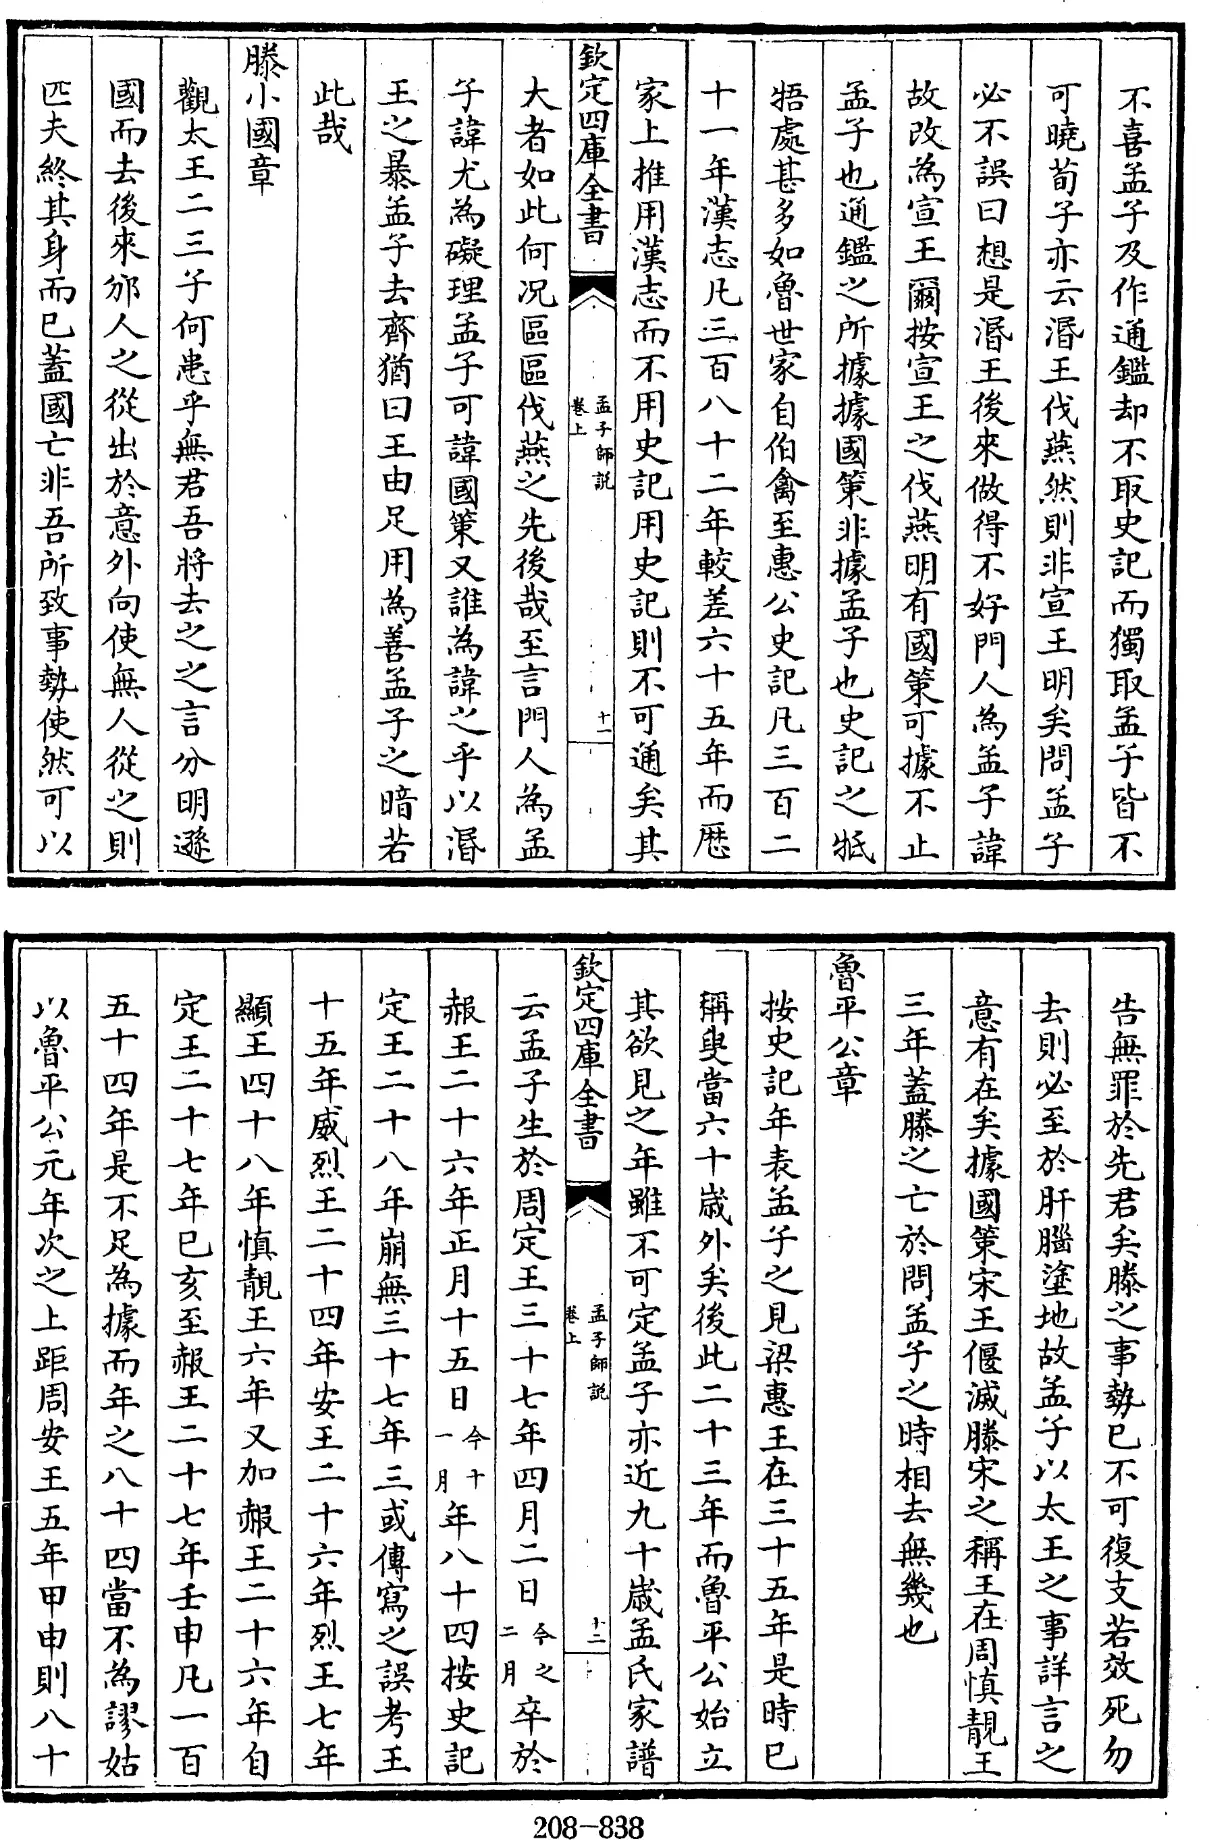 不喜孟子及作通鑑却不取史記而獨取孟子皆不
可曉荀子亦云湣王伐燕然則非宣王明矣問孟子
必不誤曰想是湣王後來做得不好門人為孟子諱
故改為宣王爾按宣王之伐燕明有國策可據不止
孟子也通鑑之所據據國策非據孟子也史記之牴
牾處甚多如魯世家自伯禽至惠公史記凡三百二
十一年漢志凡三百八十二年較差六十五年而厯
家上推用漢志而不用史記用史記則不可通矣其
欽定四庫全書
孟子師說
卷上
十一
大者如此何况區區伐燕之先後哉至言門人為孟
子諱尤為礙理孟子可諱國策又誰為諱之乎以湣
王之暴孟子去齊猶曰王由足用為善孟子之暗若
此哉
滕小國章
觀太王二三子何患乎無君吾將去之之言分明遜
國而去後來邠人之從出於意外向使無人從之則
匹夫終其身而已蓋國亡非吾所致事勢使然可以
告無罪於先君矣滕之事勢已不可復支若效死勿
去則必至於肝腦塗地故孟子以太王之事詳言之
意有在矣據國策宋王偃滅滕宋之稱王在周慎靚王
三年蓋滕之亡於問孟子之時相去無幾也
魯平公章
按史記年表孟子之見梁惠王在三十五年是時已
稱叟當六十歲外矣後此二十三年而魯平公始立
其欲見之年雖不可定孟子亦近九十歲孟氏家譜
欽定四庫全書
孟子師說
卷上
十二
云孟子生於周定王三十七年四月二日今之二月卒於
赧王二十六年正月十五日今十一月年八十四按史記
定王二十八年崩無三十七年三或傳寫之誤考王
十五年威烈王二十四年安王二十六年烈王七年
顯王四十八年慎靚王六年又加赧王二十六年自
定王二十七年己亥至赧王二十七年壬申凡一百
五十四年是不足為據而年之八十四當不為謬姑
以魯平公元年次之上距周安王五年甲申則八十
208-838